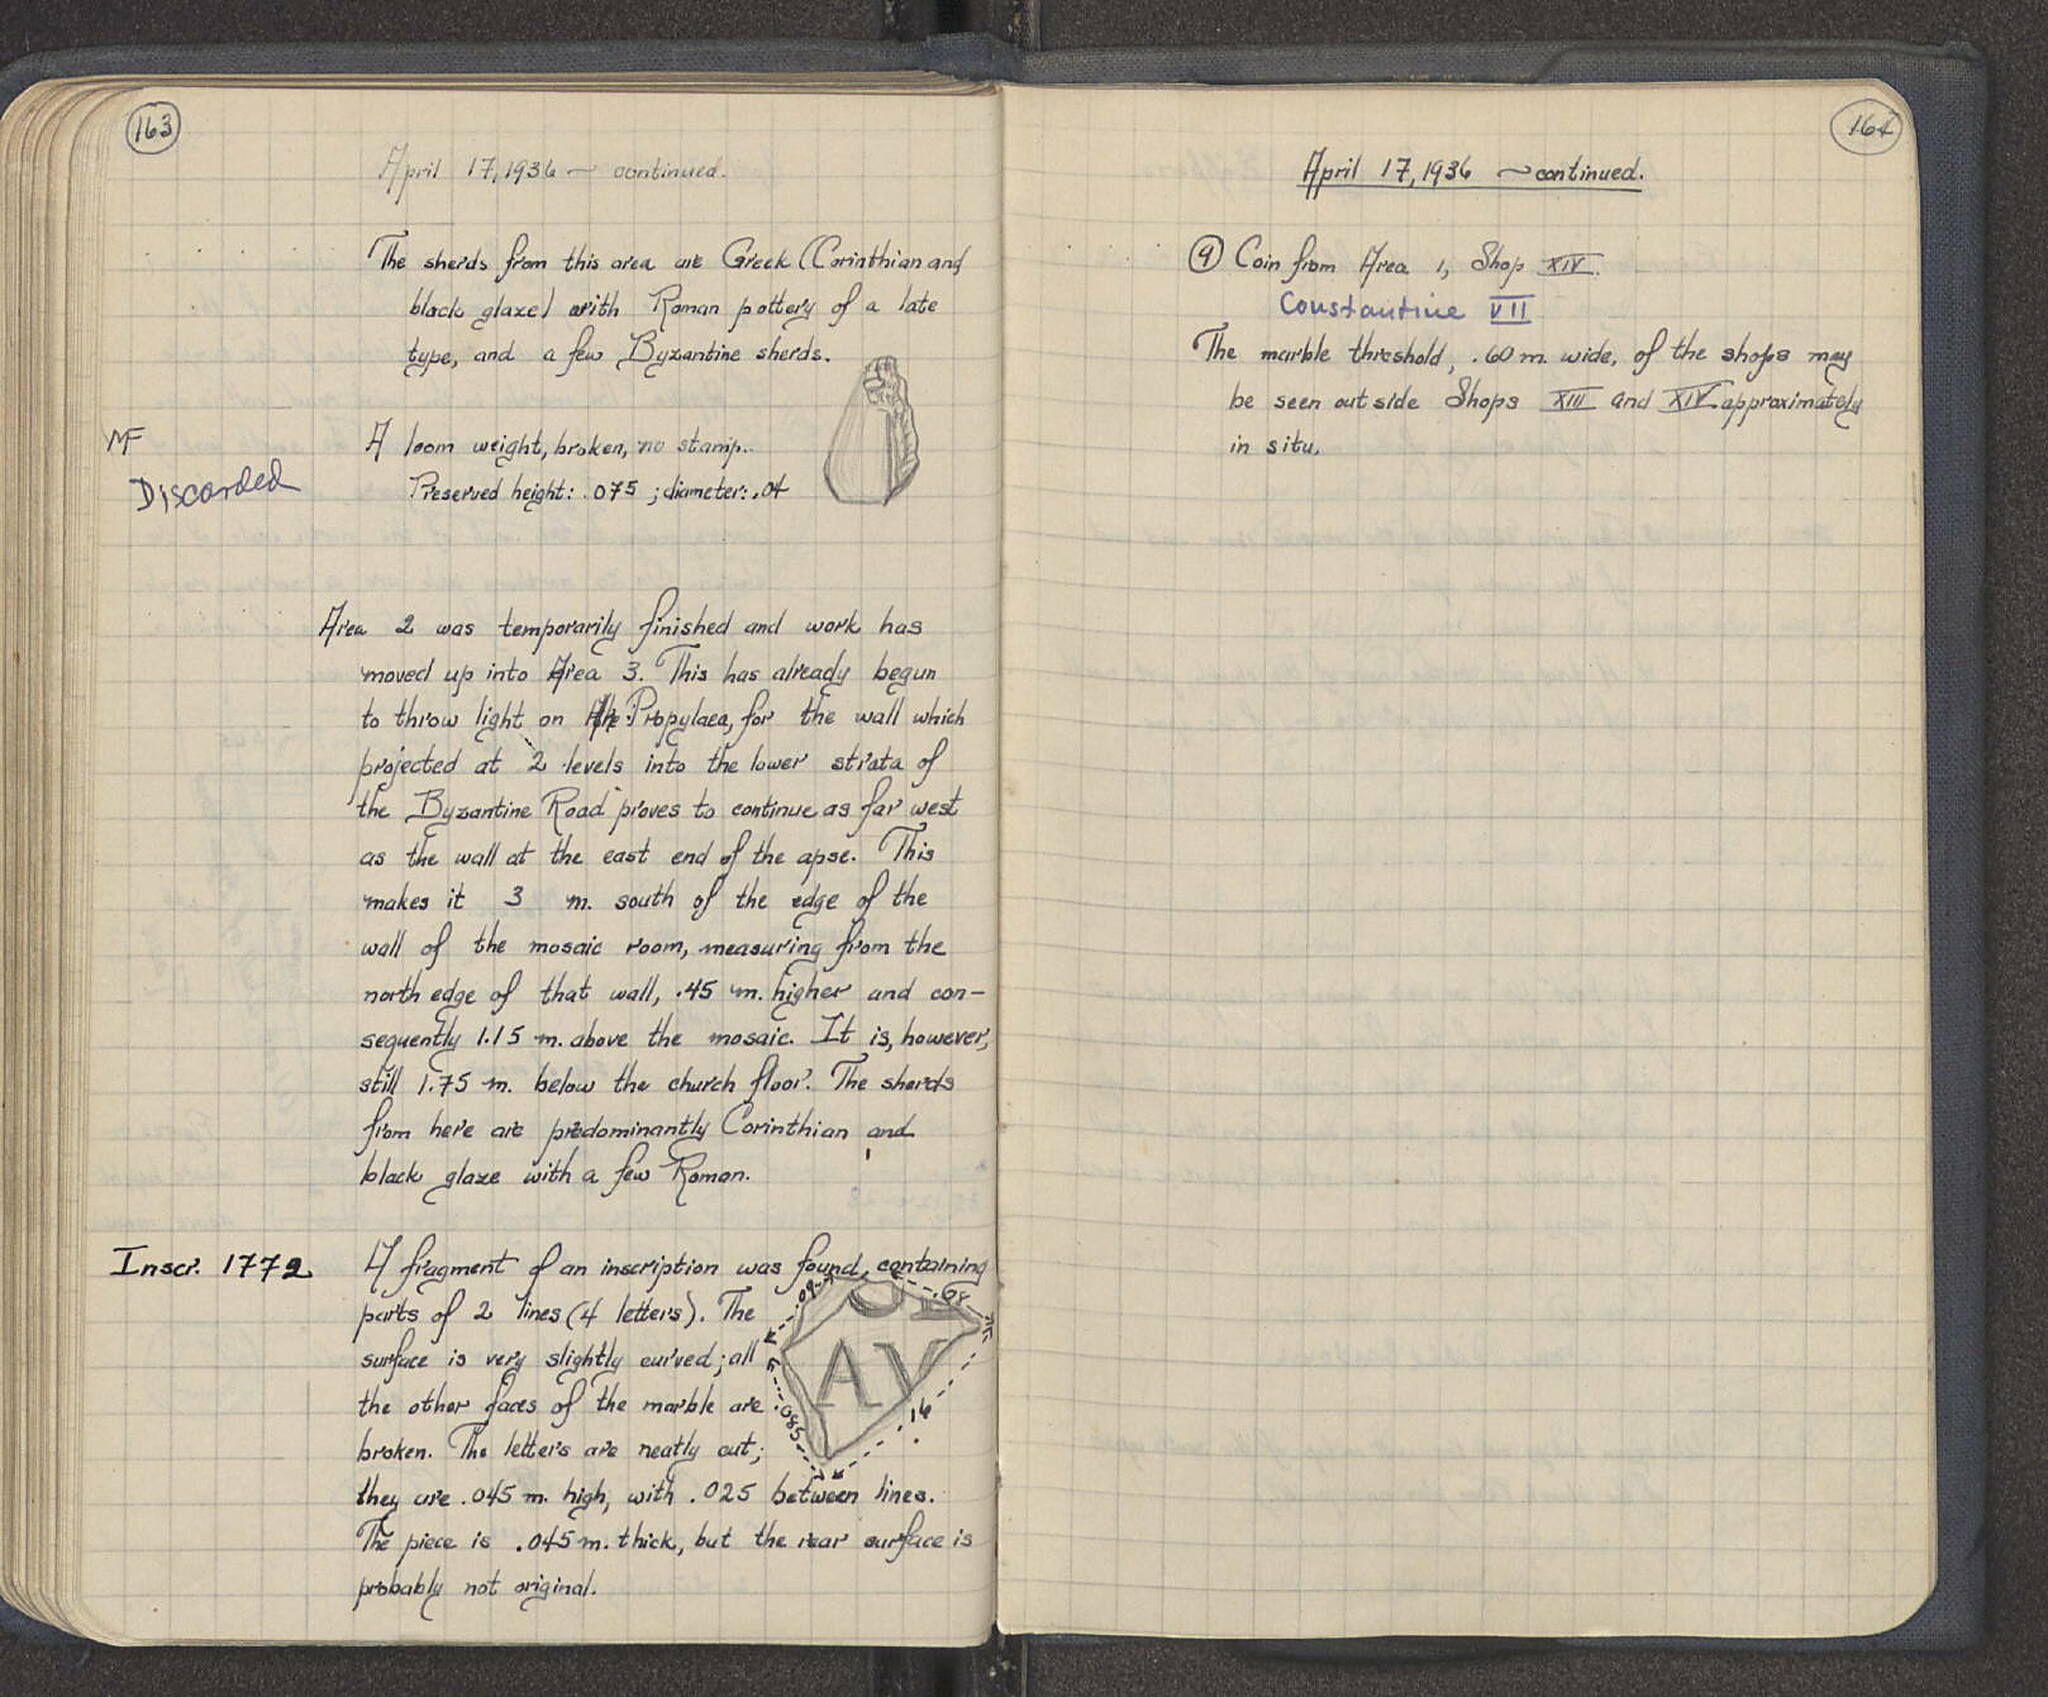 163
April 17, 1936 — continued.
The sherds from this area are Greek (Corinthian and
black glaze) with Roman pottery of a late
type, and a few Byzantine sherds.
MF
Discarded
A loom weight, broken, no stamp.
Preserved height: .075 ; diameter: .04
Area 2 was temporarily finished and work has
moved up into Area 3. This has already begun
to throw light on the Propylaea, for the wall which
projected at 2 levels into the lower strata of
the Byzantine Road proves to continue as far west
as the wall at the east end of the apse. This
makes it 3 m. south of the edge of the
wall of the mosaic room, measuring from the
north edge of that wall, .45 m. higher and con-
sequently 1.15 m. above the mosaic. It is, however,
still 1.75 m. below the church floor. The sherds
from here are predominantly Corinthian and
black glaze with a few Roman.
Inscr. 1772
A fragment of an inscription was found, containing
parts of 2 lines (4 letters). The
surface is very slightly curved; all
the other faces of the marble are
broken. The letters are neatly cut;
they are .045 m. high, with .025 between lines.
The piece is .045 m. thick, but the rear surface is
probably not original.
.09
.08
AY
.085
.16
164
April 17, 1936 — continued.
⑨ Coin from Area 1, Shop XIV.
Constantine VII
The marble threshold, .60 m. wide, of the shops may
be seen outside Shops XIII and XIV approximately
in situ.